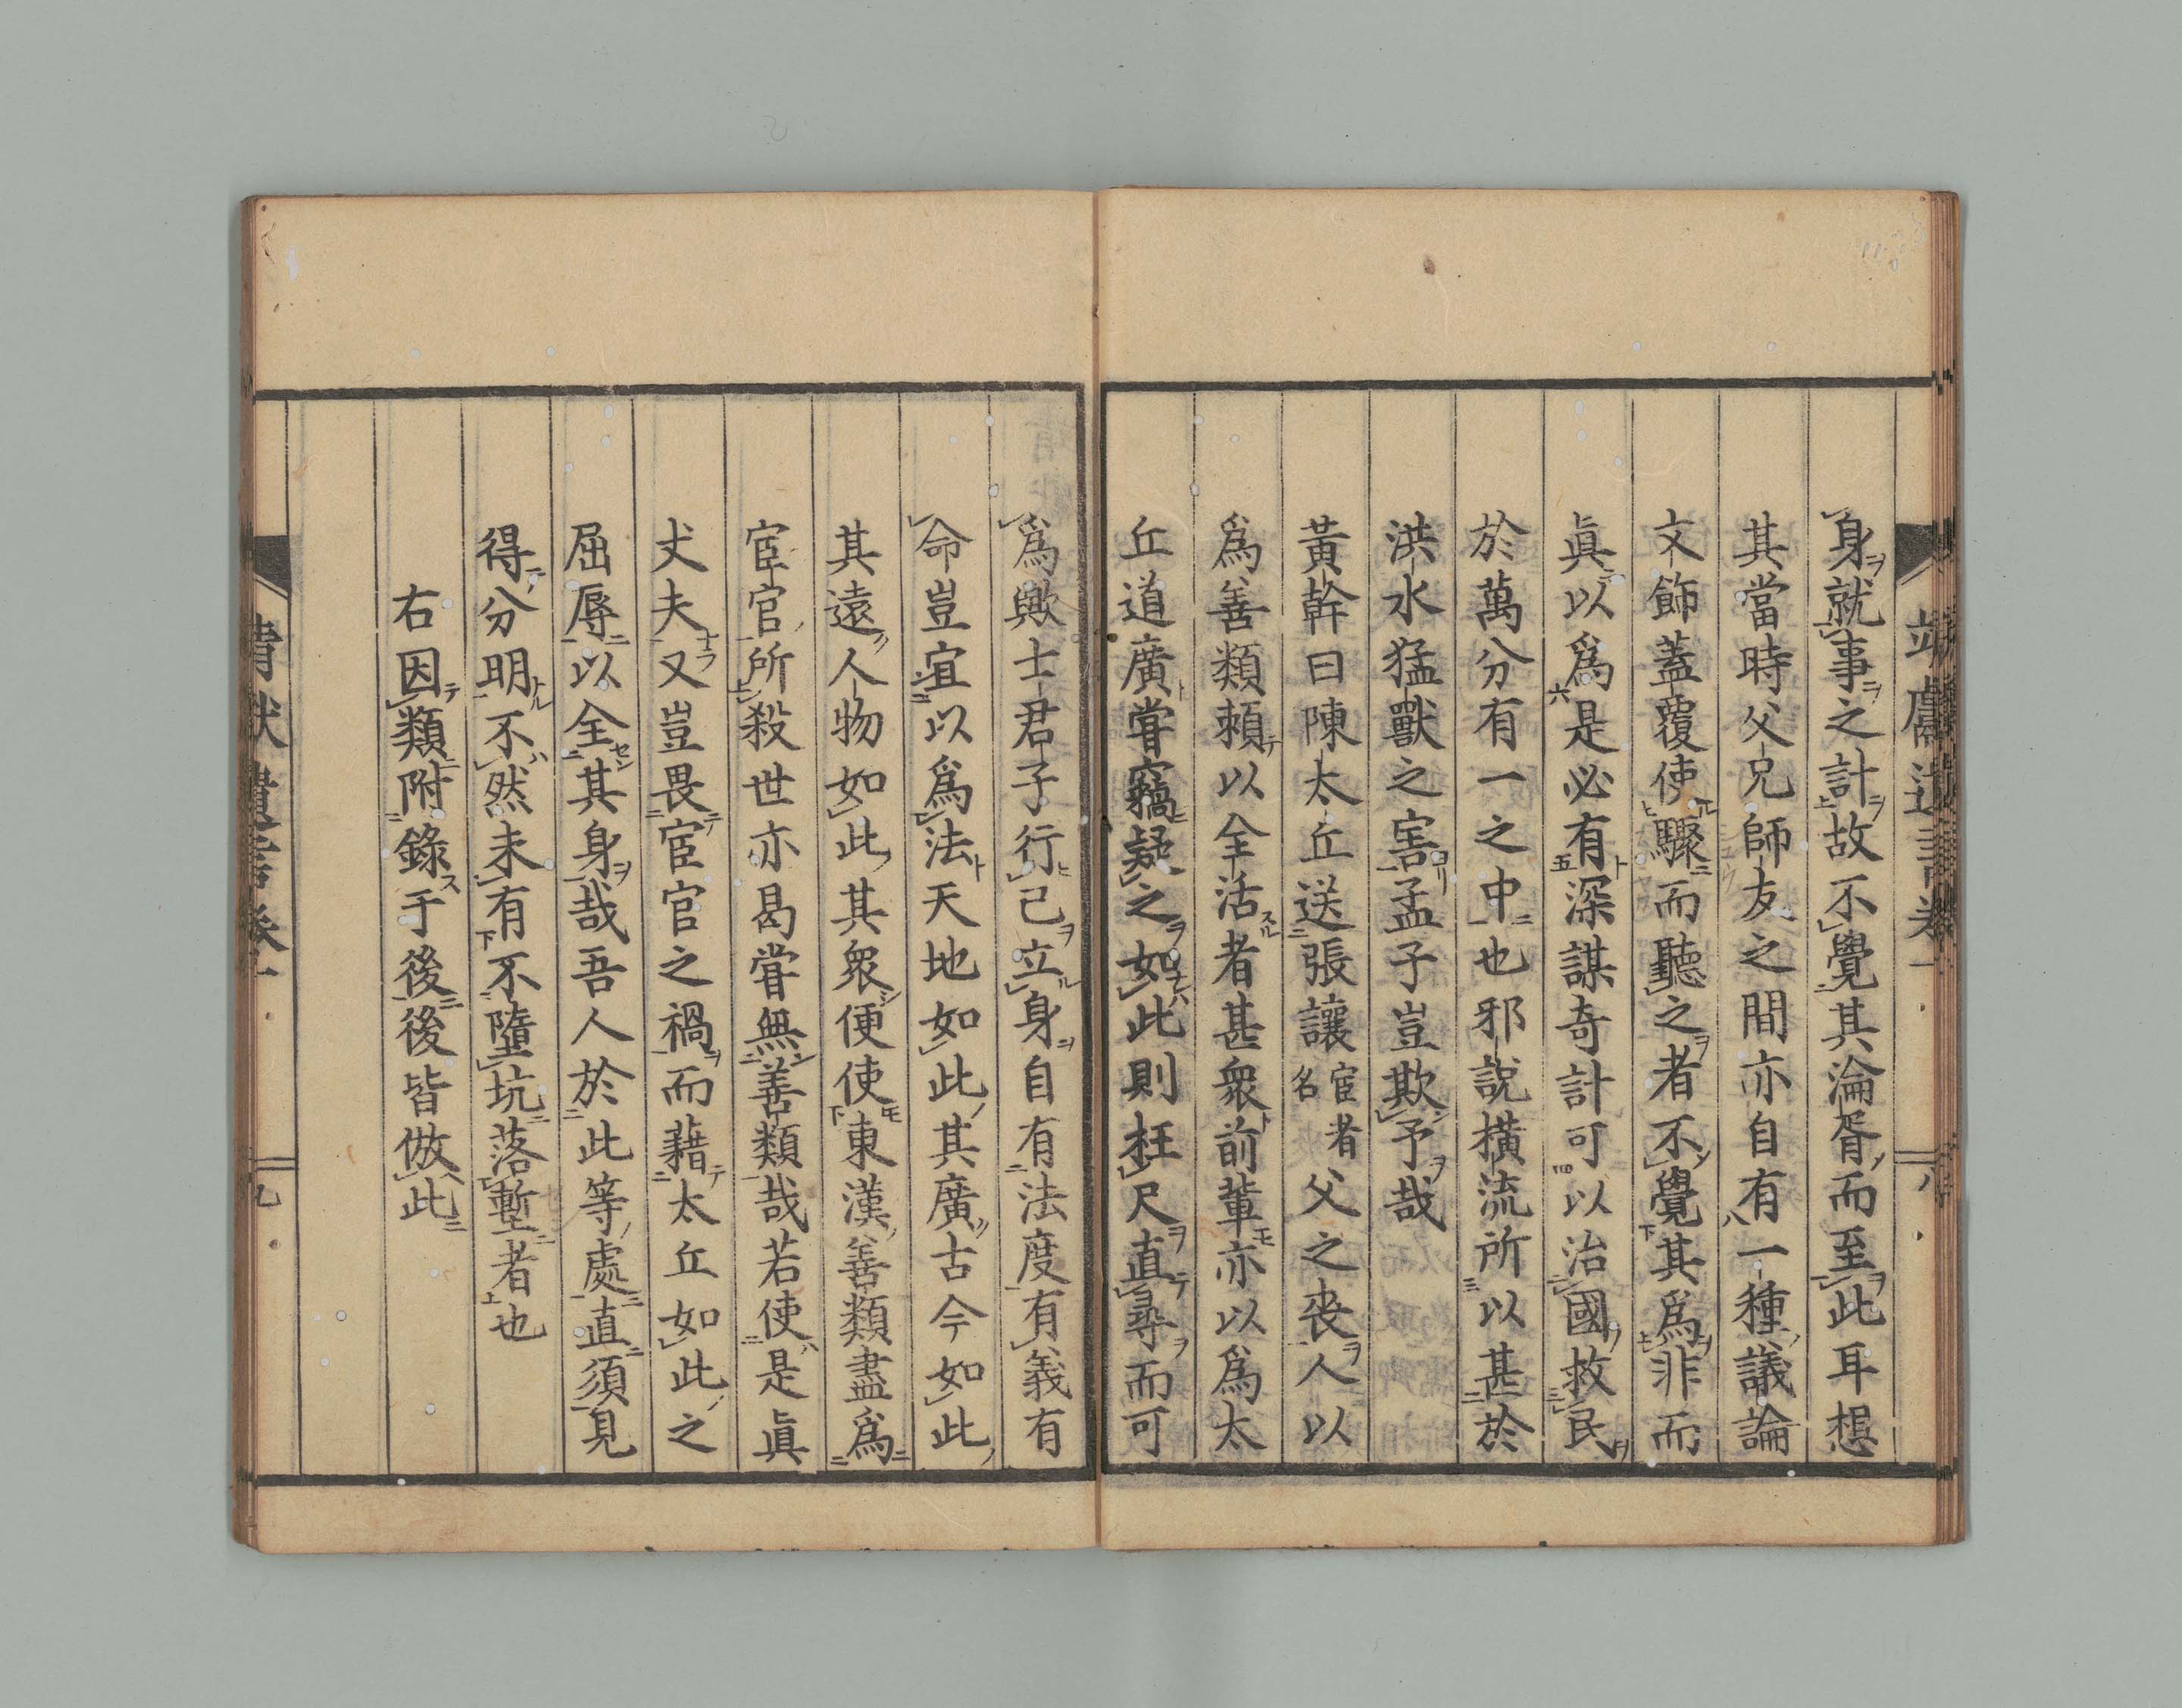 身就事之計故不覺其淪胥而至此耳想
其當時父兄師友之間亦自有一種議論
文飾蓋覆使驟而聽之者不覺其爲非而
眞以爲是必有深謀奇計可以治國救民
於萬分有一之中也邪說橫流所以甚於
洪水猛獸之害孟子豈欺予哉
黃幹曰陳太丘送張讓宦者名父之喪人以
爲善類頼以全活者甚衆前輩亦以爲太
丘道廣嘗竊疑之如此則枉尺直尋而可
爲歟士君子行己立身自有法度有義有
命豈宜以爲法天地如此其廣古今如此
其遠人物如此其衆便使東漢善類盡爲
宦官所殺世亦曷嘗無善類哉若使是眞
丈夫又豈畏宦官之禍而藉太丘如此之
屈辱以全其身哉吾人於此等處直須見
得分明不然未有不墮坑落塹者也
右因類附錄于後後皆倣此
九